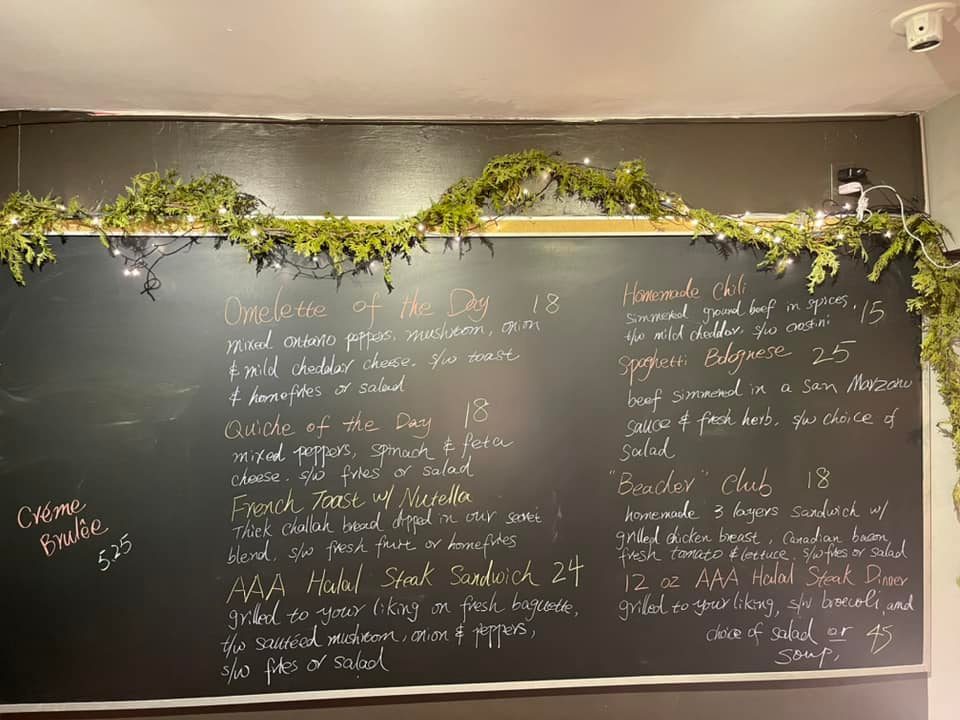 Créme
Brulêe
5.25
Omelette of the Day 18
mixed ontario peppers, mushroom, onion
& mild cheddar cheese. s/w toast
& homefries or salad
Quiche of the Day 18
mixed peppers, spinach & feta
cheese. s/w fries or salad
French Toast w/ Nutella
Thick challah bread dipped in our secret
blend. s/w fresh fruit or homefries
AAA Halal Steak Sandwich 24
grilled to your liking on fresh baguette,
t/w sautéed mushroom, onion & peppers,
s/w fries or salad
Homemade Chili
simmered ground beef in spices, 15
t/w mild cheddar. s/w crostini
Spaghetti Bolognese 25
beef simmered in a San Marzano
sauce & fresh herb. s/w choice of
salad
"Beacher" Club 18
homemade 3 layers sandwich w/
grilled chicken breast, Canadian bacon,
fresh tomato & lettuce. s/w fries or salad
12 oz AAA Halal Steak Dinner
grilled to your liking, s/w broccoli, and
choice of salad or 45
soup.